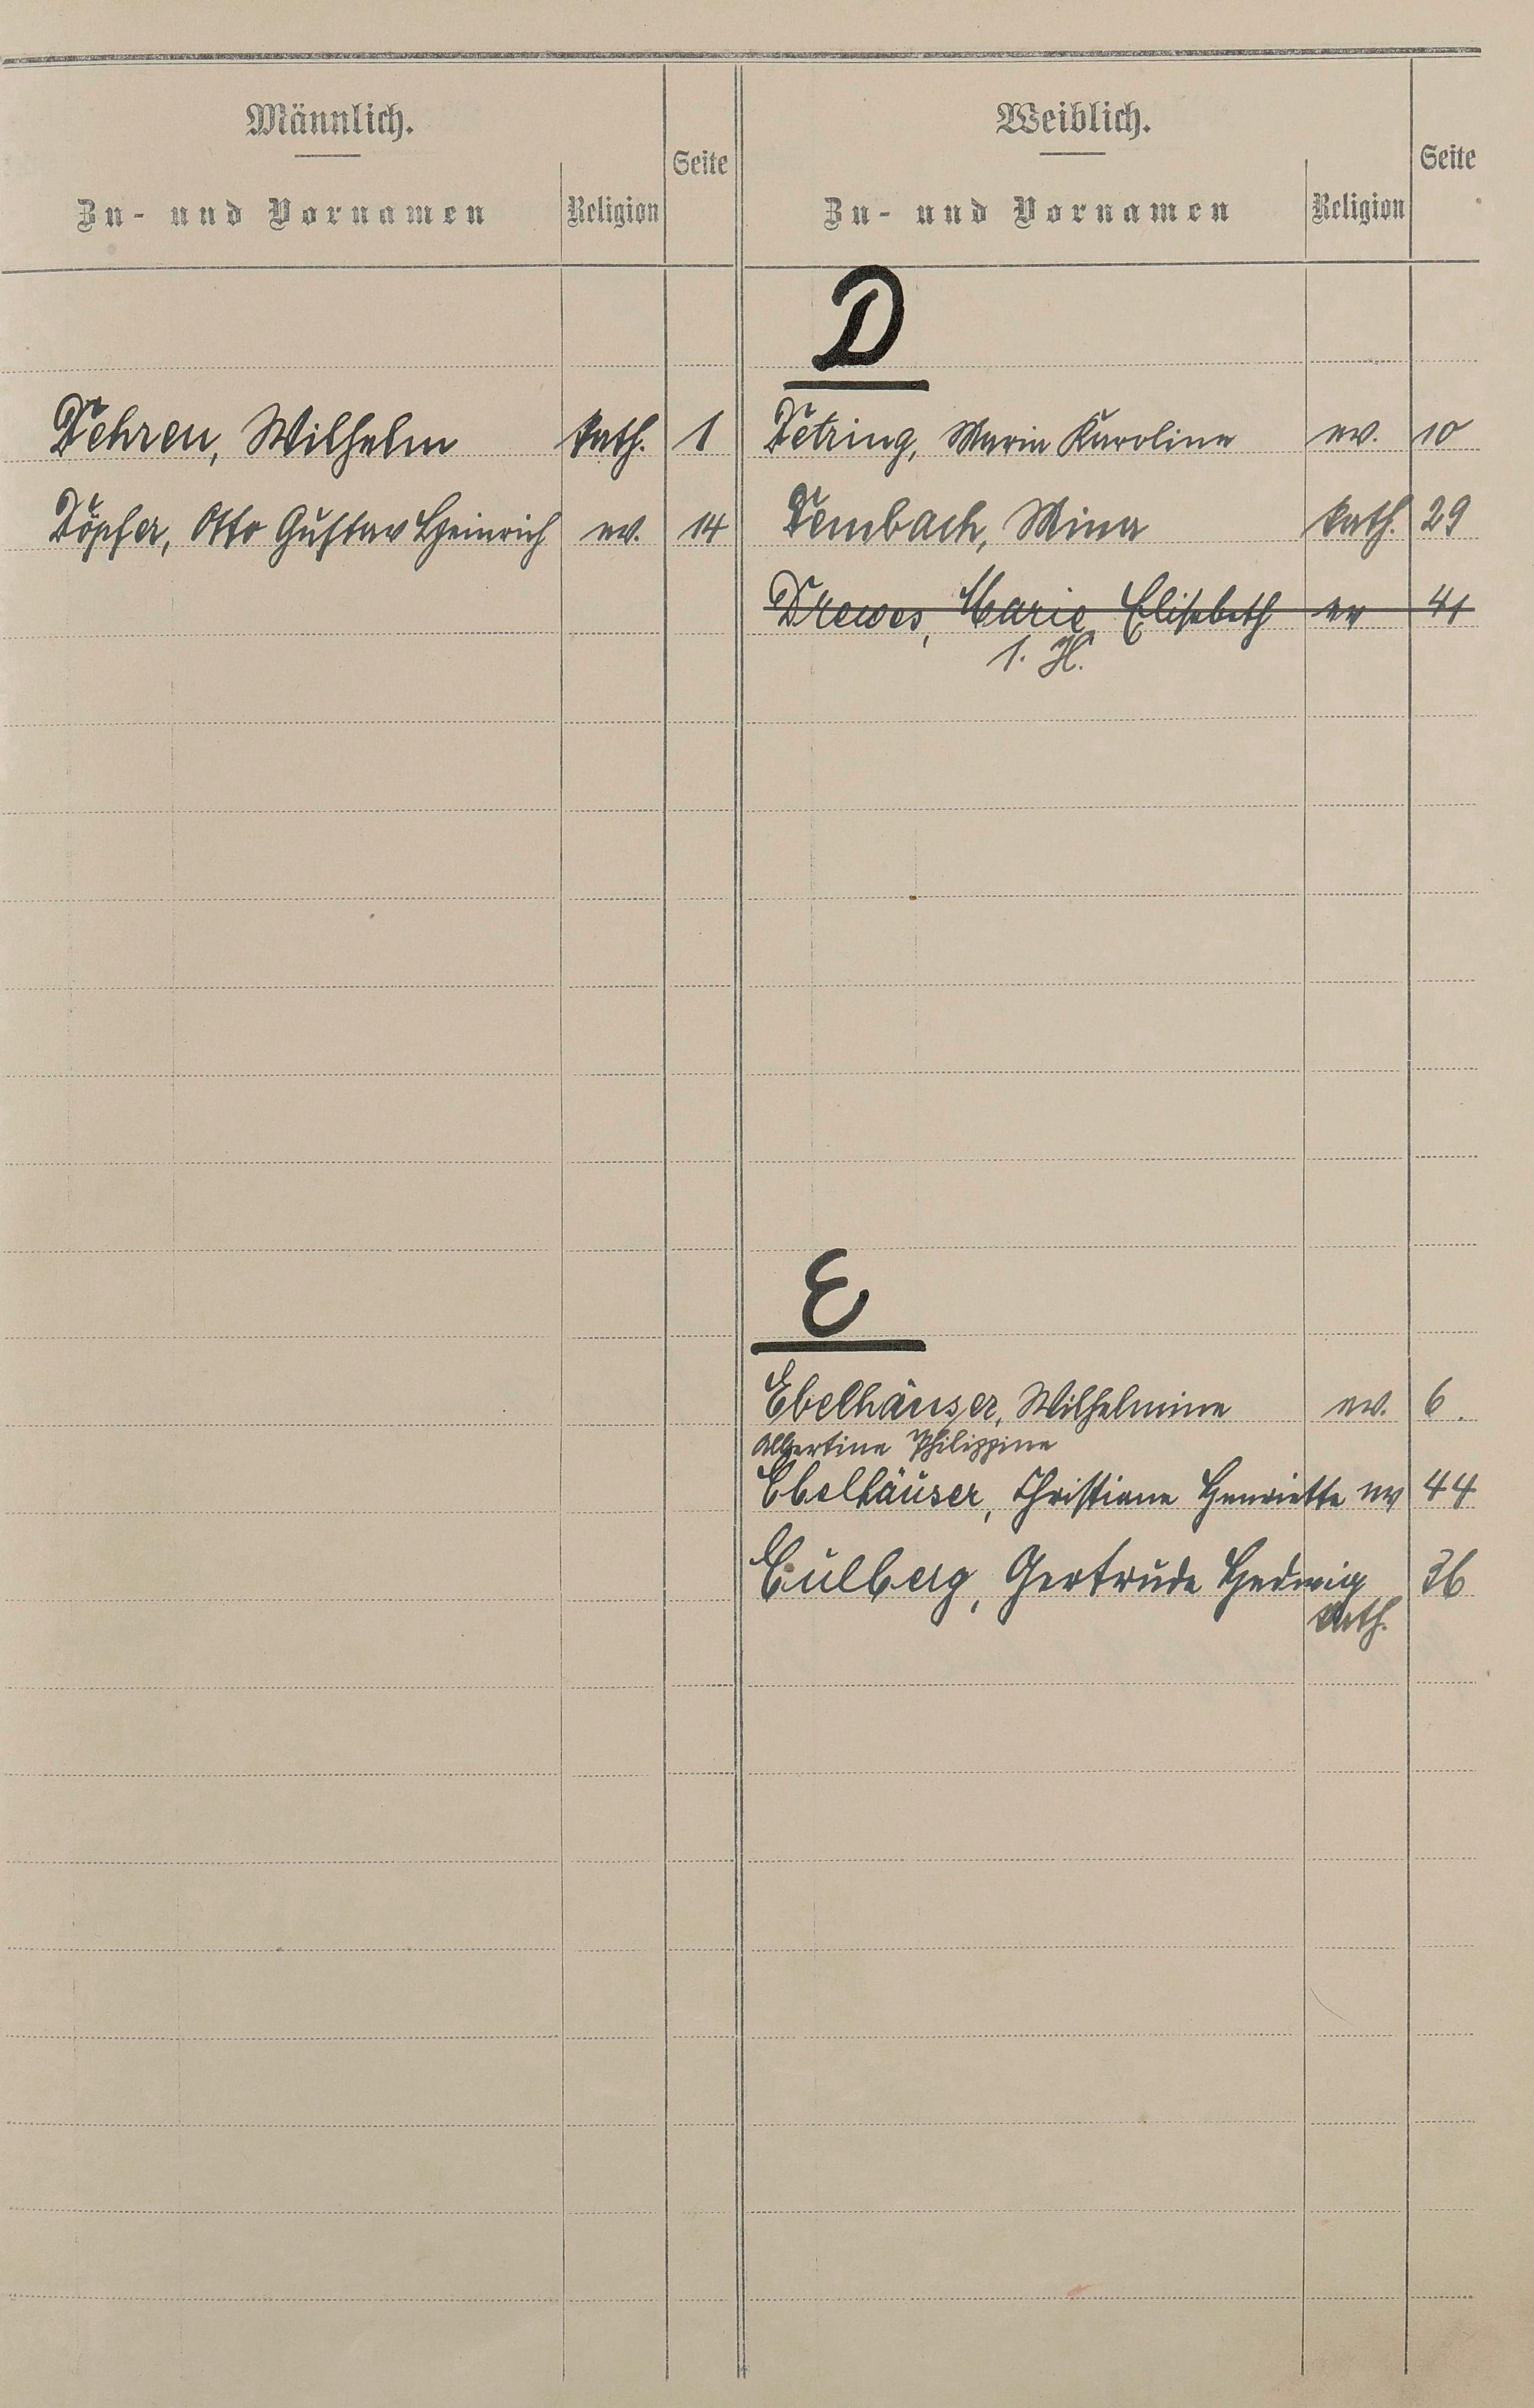 Männlich.
Zu- und Vornamen
Religion
Seite
Weiblich.
Zu- und Vornamen
Religion
Seite
D
Dehren, Wilhelm kath. 1
Döpfer, Otto Gustav Heinrich ev. 14
Detring, Maria Karoline ev. 10
Dembach, Mina kath. 29
Drewes, Marie Elisabeth ev 41
s. H.
E
Ebelhäuser, Wilhelmine ev. 6.
Albertine Philippine
Ebelhäuser, Christiane Henriette ev 44
Eulberg, Gertrude Hedwig 36
kath.